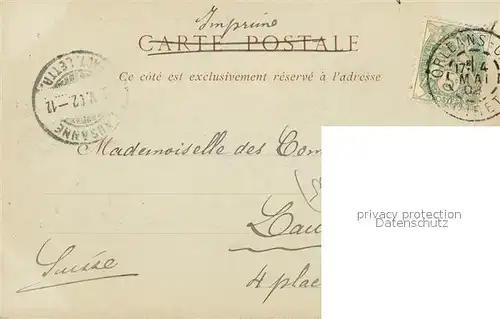 Imprimé
CARTE POSTALE
Ce côté est exclusivement réservé à l'adresse
ORLEANS
17 4
MAI
02
LAUSANNE
LETTR.
Mademoiselle des Com
Lau
4 plac
Suisse
privacy protection
Datenschutz